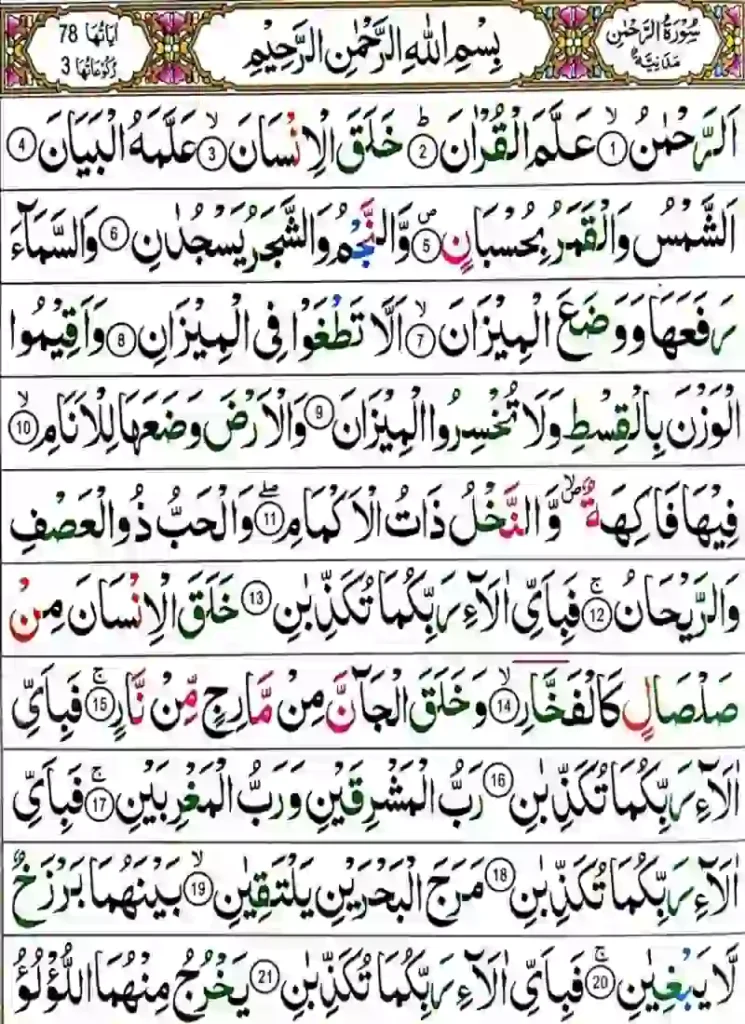 سُوْرَةُ الرَّحْمٰنِ
مَدَنِيَّةٌ
بِسْمِ اللّٰهِ الرَّحْمٰنِ الرَّحِيْمِ
اٰيَاتُهَا 78
رُكُوْعَاتُهَا 3
اَلرَّحْمٰنُ ۙ‏1 عَلَّمَ الْقُرْاٰنَ ؕ‏2 خَلَقَ الْاِنْسَانَ ۙ‏3 عَلَّمَهُ الْبَيَانَ 4
اَلشَّمْسُ وَالْقَمَرُ بِحُسْبَانٍ ۪‏5 وَّالنَّجْمُ وَالشَّجَرُ يَسْجُدٰنِ 6 وَالسَّمَآءَ
رَفَعَهَا وَوَضَعَ الْمِيْزَانَ ۙ‏7 اَلَّا تَطْغَوْا فِى الْمِيْزَانِ 8 وَاَقِيْمُوا
الْوَزْنَ بِالْقِسْطِ وَلَا تُخْسِرُوا الْمِيْزَانَ 9 وَالْاَرْضَ وَضَعَهَا لِلْاَنَامِ ۙ‏10
فِيْهَا فَاكِهَةٌ ۪ۙ وَّالنَّخْلُ ذَاتُ الْاَكْمَامِ ۖ‏11 وَالْحَبُّ ذُو الْعَصْفِ
وَالرَّيْحَانُ ۚ‏12 فَبِاَىِّ اٰلَآءِ رَبِّكُمَا تُكَذِّبٰنِ 13 خَلَقَ الْاِنْسَانَ مِنْ
صَلْصَالٍ كَالْفَخَّارِ ۙ‏14 وَخَلَقَ الْجَآنَّ مِنْ مَّارِجٍ مِّنْ نَّارٍ ۚ‏15 فَبِاَىِّ
اٰلَآءِ رَبِّكُمَا تُكَذِّبٰنِ 16 رَبُّ الْمَشْرِقَيْنِ وَرَبُّ الْمَغْرِبَيْنِ ۚ‏17 فَبِاَىِّ
اٰلَآءِ رَبِّكُمَا تُكَذِّبٰنِ 18 مَرَجَ الْبَحْرَيْنِ يَلْتَقِيٰنِ ۙ‏19 بَيْنَهُمَا بَرْزَخٌ
لَّا يَبْغِيٰنِ ۚ‏20 فَبِاَىِّ اٰلَآءِ رَبِّكُمَا تُكَذِّبٰنِ 21 يَخْرُجُ مِنْهُمَا اللُّؤْلُؤُ